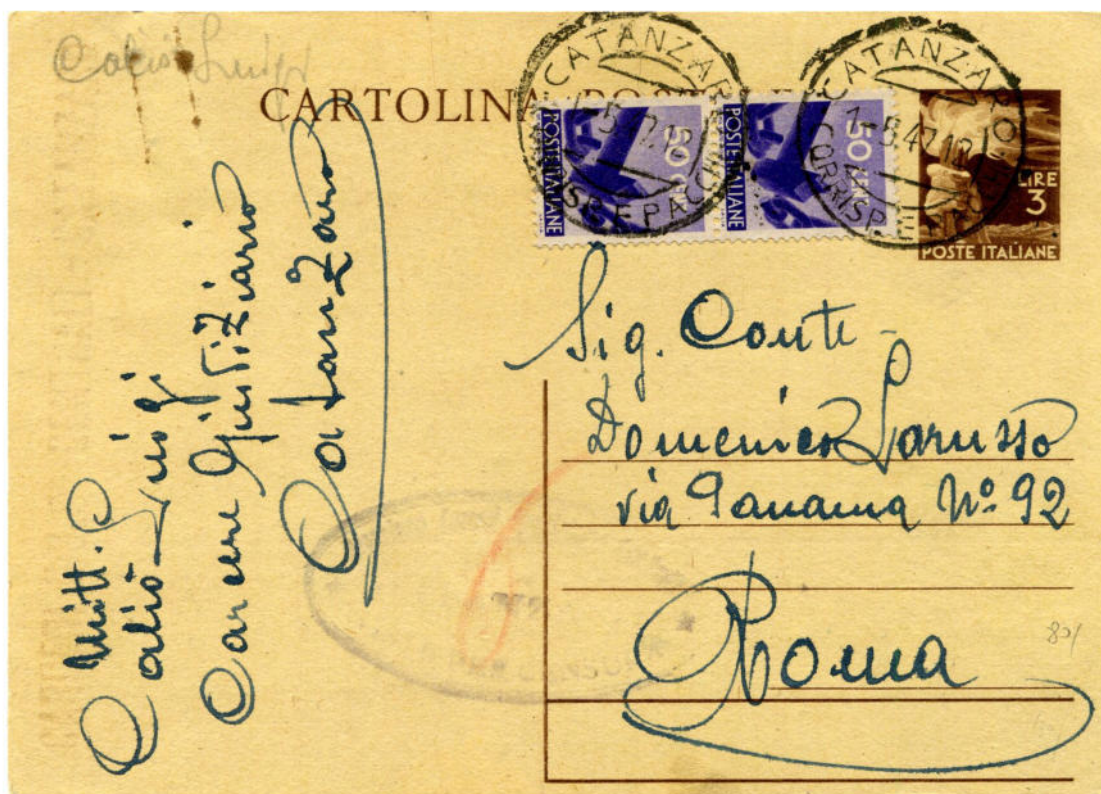 Caliò Luigi
CARTOLINA POSTALE
CATANZARO
CORRISP. E PACCHI
CATANZARO
1-5.47.18
CORRISP. E PACCHI
50 CENT
POSTE ITALIANE
50 CENT
POSTE ITALIANE
LIRE
3
POSTE ITALIANE
Mitt.
Caliò Luigi
Carcere Giudiziario
Catanzaro
Sig. Conte
Domenico Larussa
via Panama Nº 92
Roma